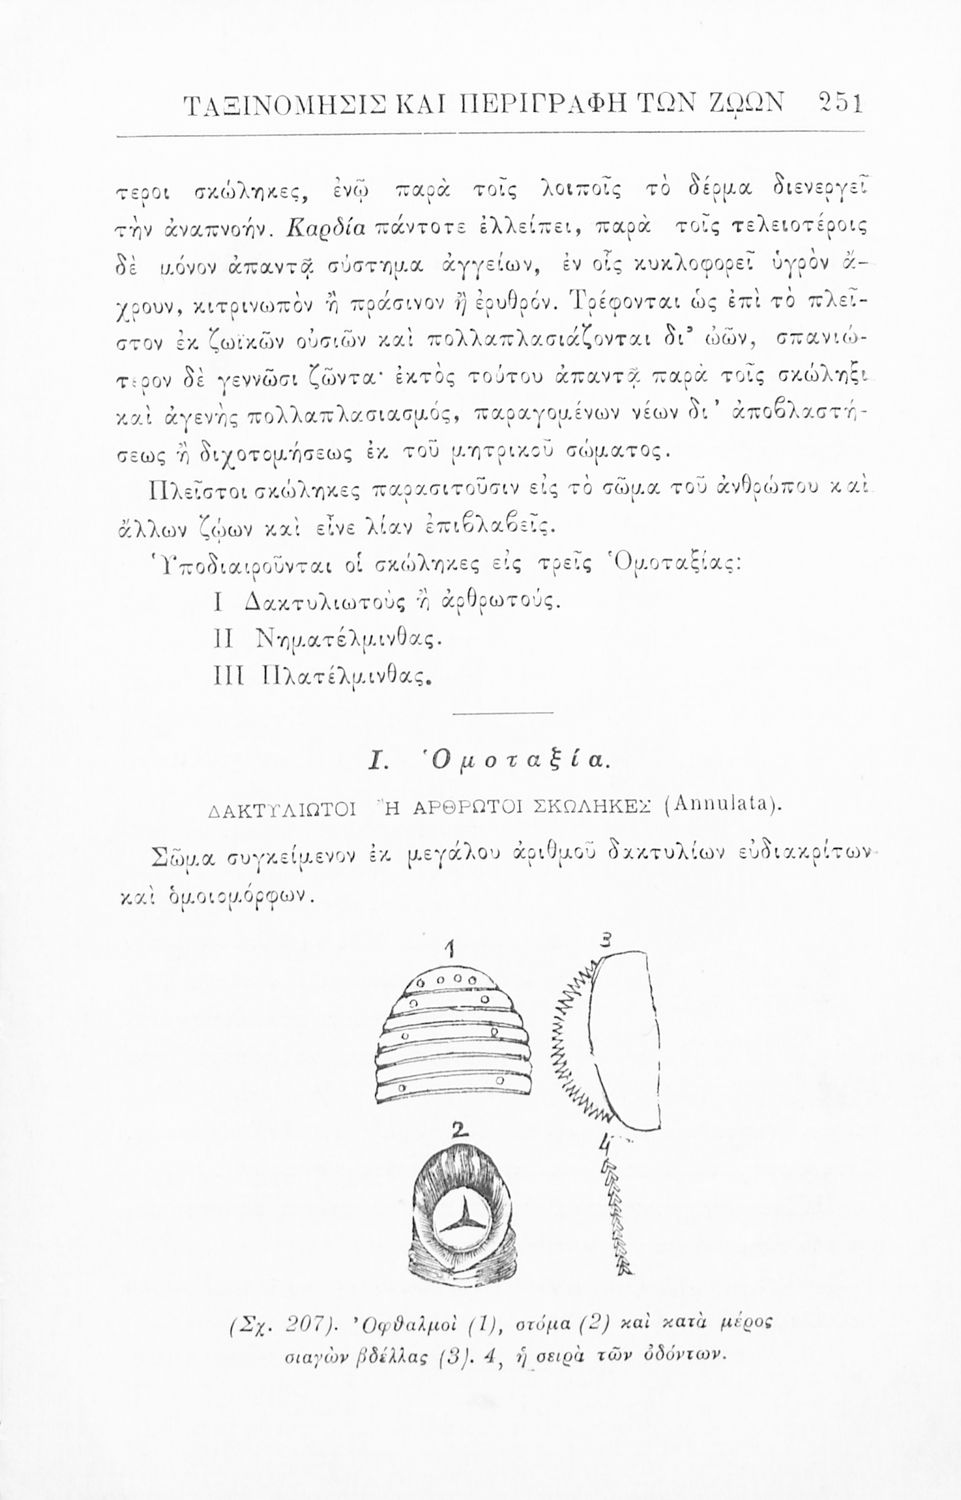 ΤΑΞΙΝΟΜΗΣΙΣ ΚΑΙ ΠΕΡΙΓΡΑΦΗ ΤΩΝ ΖΩΩΝ 251
τεροι σκώληκες, ἐνῷ παρὰ τοῖς λοιποῖς τὸ δέρμα διενεργεῖ
τὴν ἀναπνοήν. Καρδία πάντοτε ἐλλείπει, παρὰ τοῖς τελειοτέροις
δὲ μόνον ἀπαντᾷ σύστημα ἀγγείων, ἐν οἷς κυκλοφορεῖ ὑγρὸν ἄ-
χρουν, κιτρινωπὸν ἢ πράσινον ἢ ἐρυθρόν. Τρέφονται ὡς ἐπὶ τὸ πλεῖ-
στον ἐκ ζωϊκῶν οὐσιῶν καὶ πολλαπλασιάζονται δι' ὠῶν, σπανιώ-
τερον δὲ γεννῶσι ζῶντα· ἐκτὸς τούτου ἀπαντᾷ παρὰ τοῖς σκώληξι
καὶ ἀγενὴς πολλαπλασιασμός, παραγομένων νέων δι' ἀποβλαστή-
σεως ἢ διχοτομήσεως ἐκ τοῦ μητρικοῦ σώματος.
Πλεῖστοι σκώληκες παρασιτοῦσιν εἰς τὸ σῶμα τοῦ ἀνθρώπου καὶ
ἄλλων ζῴων καὶ εἶνε λίαν ἐπιβλαβεῖς.
Ὑποδιαιροῦνται οἱ σκώληκες εἰς τρεῖς Ὁμοταξίας:
I Δακτυλιωτοὺς ἢ ἀρθρωτούς.
II Νηματέλμινθας.
III Πλατέλμινθας.
I. Ὁμοταξία.
ΔΑΚΤΥΛΙΩΤΟΙ Ἢ ΑΡΘΡΩΤΟΙ ΣΚΩΛΗΚΕΣ (Annulata).
Σῶμα συγκείμενον ἐκ μεγάλου ἀριθμοῦ δακτυλίων εὐδιακρίτων
καὶ ὁμοιομόρφων.
1
3
2
4
(Σχ. 207). Ὀφθαλμοὶ (1), στόμα (2) καὶ κατὰ μέρος
σιαγὼν βδέλλας (3). 4, ἡ σειρὰ τῶν ὀδόντων.